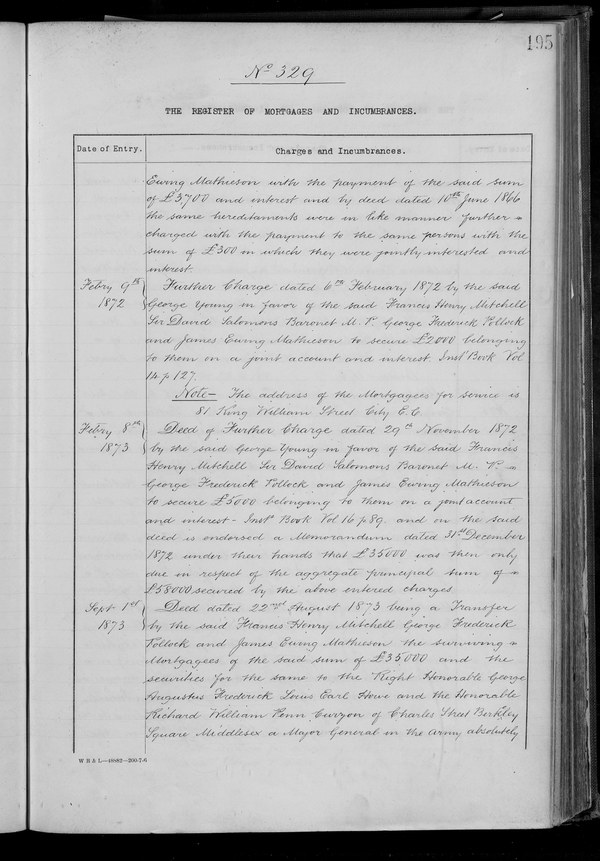 195
No 329
THE REGISTER OF MORTGAGES AND INCUMBRANCES.
Date of Entry. Charges and Incumbrances.
Ewing Mathieson with the payment of the said sum
of £3700 and interest and by deed dated 10th June 1866
the same hereditaments were in like manner further
charged with the payment to the same persons with the
sum of £300 in which they were jointly interested and
interest.
Febry 9th 1872 Further Charge dated 6th February 1872 by the said
George Young in favor of the said Francis Henry Mitchell
Sir David Salomons Baronet M. P. George Frederick Pollock
and James Ewing Mathieson to secure £2000 belonging
to them on a joint account and interest Inst Book Vol
14 p 127.
Note- The address of the Mortgagees for service is
81 King William Street City E.C
Febry 8th 1873 Deed of Further Charge dated 29th November 1872
by the said George Young in favor of the said Francis
Henry Mitchell Sir David Salomons Baronet M. P.
George Frederick Pollock and James Ewing Mathieson
to secure £5000 belonging to them on a joint account
and interest - Inst Book Vol 16 p 89. and on the said
deed is endorsed a Memorandum dated 31st December
1872 under their hands that £35000 was then only
due in respect of the aggregate principal sum of
£58000 secured by the above entered charges
Sept 1st 1873 Deed dated 22nd August 1873 being a Transfer
by the said Francis Henry Mitchell George Frederick
Pollock and James Ewing Mathieson the surviving
Mortgagees of the said sum of £35000 and the
securities for the same to the Right Honorable George
Augustus Frederick Louis Earl Howe and the Honorable
Richard William Penn Curzon of Charles Street Berkley
Square Middlesex a Major General in the Army absolutely